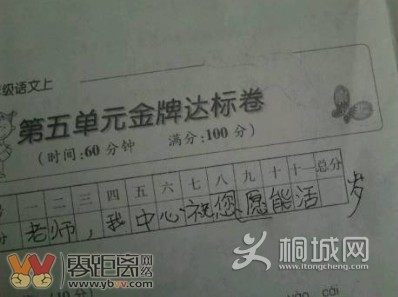 级语文上
第五单元金牌达标卷
(时间:60分钟 满分:100分)
一 二 三 四 五 六 七 八 九 十 十一 总分
分
老师,我中心祝您愿能活 岁
零距离网络
www.ybvv.com
桐城网
www.itongcheng.com